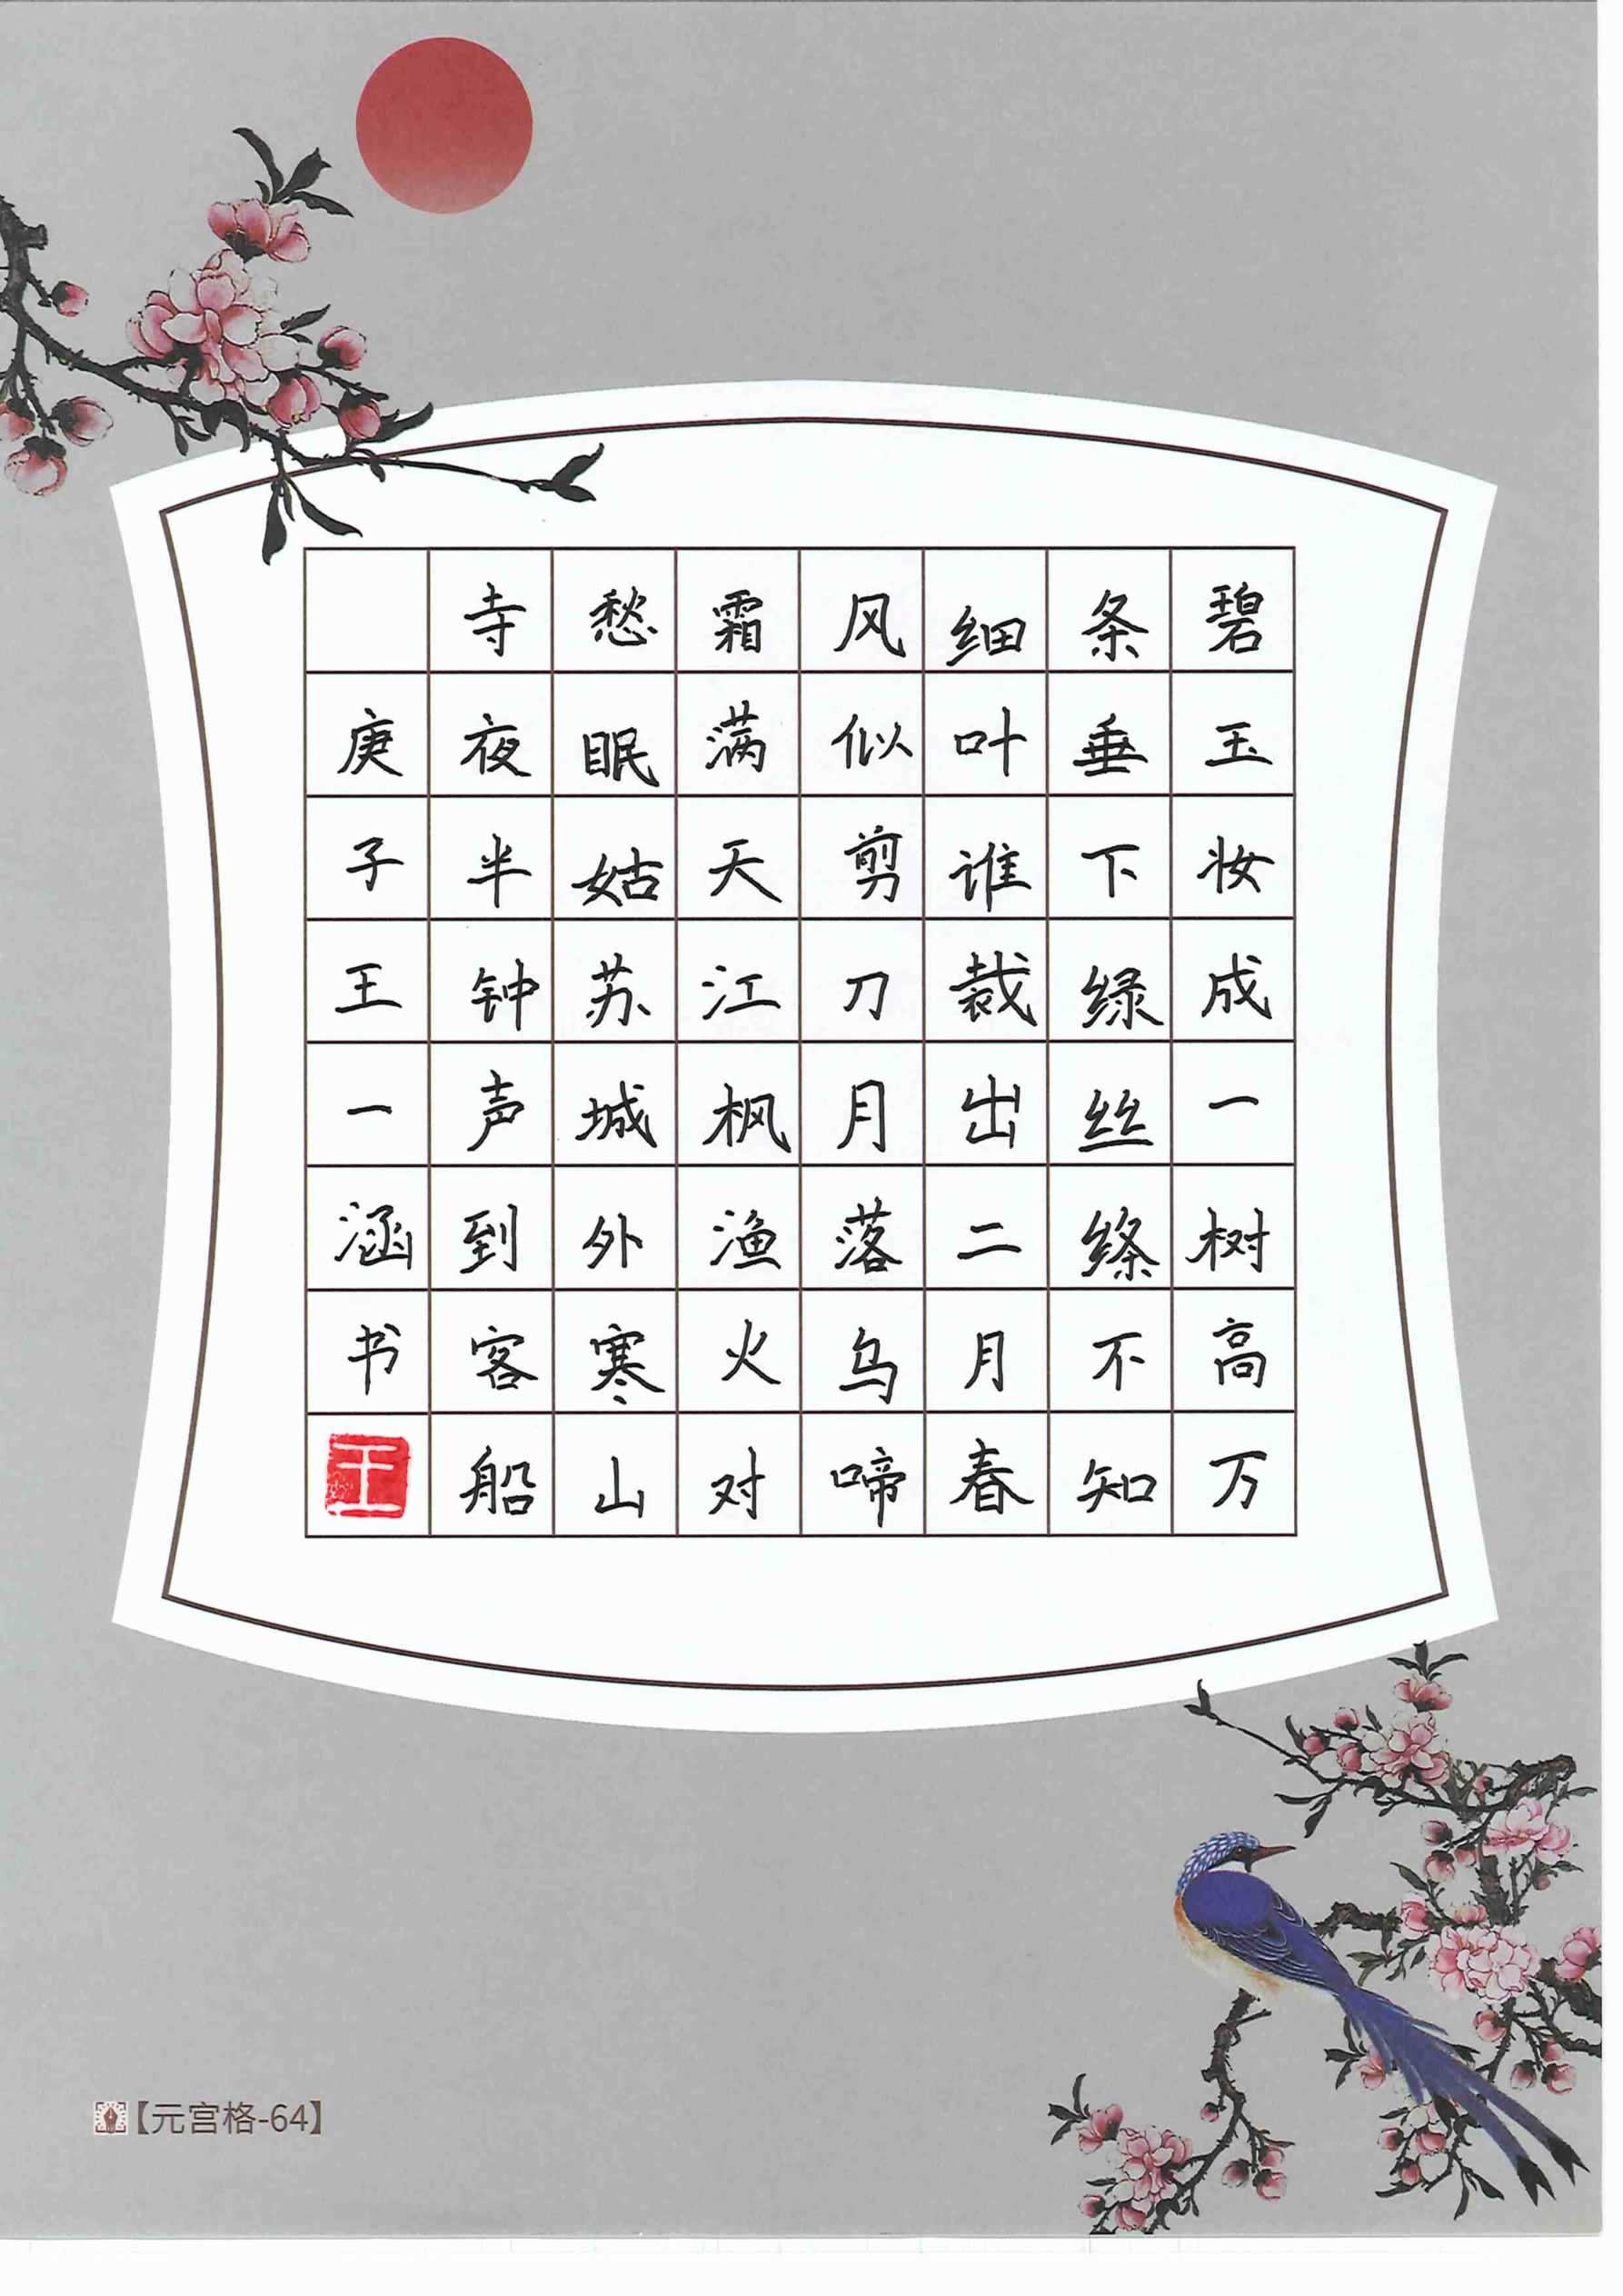 碧玉妆成一树高万
条垂下绿丝绦不知
细叶谁裁出二月春
风似剪刀月落乌啼
霜满天江枫渔火对
愁眠姑苏城外寒山
寺夜半钟声到客船
庚子王一涵书
王
【元宫格-64】